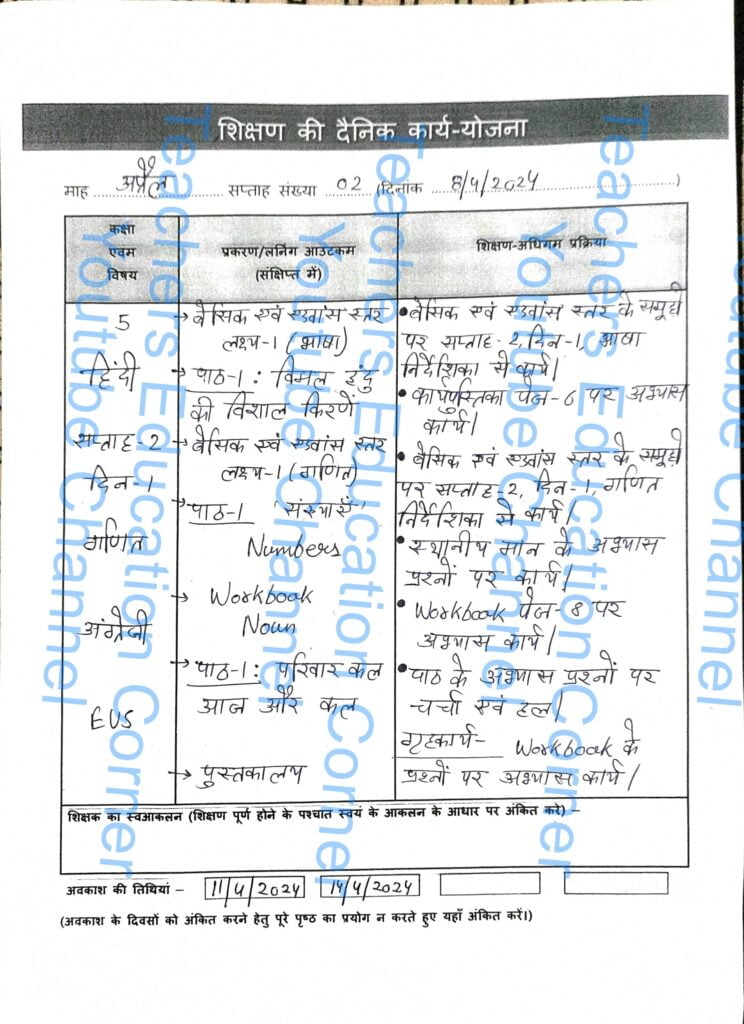 शिक्षण की दैनिक कार्य-योजना
माह अप्रैल सप्ताह संख्या 02 (दिनांक 8/4/2024)
कक्षा
एवम
विषय
प्रकरण/लर्निंग आउटकम
(संक्षिप्त में)
शिक्षण-अधिगम प्रक्रिया
5
हिंदी
सप्ताह-2
दिन-1
गणित
अंग्रेजी
EVS
→ बेसिक एवं एडवांस स्तर
लक्ष्य-1 (भाषा)
→ पाठ-1 : विमल इंदु
की विशाल किरणें
→ बेसिक एवं एडवांस स्तर
लक्ष्य-1 (गणित)
→ पाठ-1 'संख्याएँ'
Numbers
→ Workbook
Noun
→ पाठ-1: परिवार कल
आज और कल
→ पुस्तकालय
• बेसिक एवं एडवांस स्तर के समूहों
पर सप्ताह-2, दिन-1, भाषा
निर्देशिका से कार्य।
• कार्यपुस्तिका पेज-6 पर अभ्यास
कार्य।
• बेसिक एवं एडवांस स्तर के समूहों
पर सप्ताह-2, दिन-1, गणित
निर्देशिका से कार्य।
• स्थानीय मान के अभ्यास
प्रश्नों पर कार्य।
• Workbook पेज-8 पर
अभ्यास कार्य।
• पाठ के अभ्यास प्रश्नों पर
चर्चा एवं हल।
गृहकार्य- Workbook के
प्रश्नों पर अभ्यास कार्य।
शिक्षक का स्वआकलन (शिक्षण पूर्ण होने के पश्चात स्वयं के आकलन के आधार पर अंकित करे) –
अवकाश की तिथियां – 11/4/2024 14/4/2024
(अवकाश के दिवसों को अंकित करने हेतु पूरे पृष्ठ का प्रयोग न करते हुए यहाँ अंकित करें।)
Teachers Education Corner
Youtube Channel
Teachers Education Corner
Youtube Channel
Teachers Education Corner
Youtube Channel